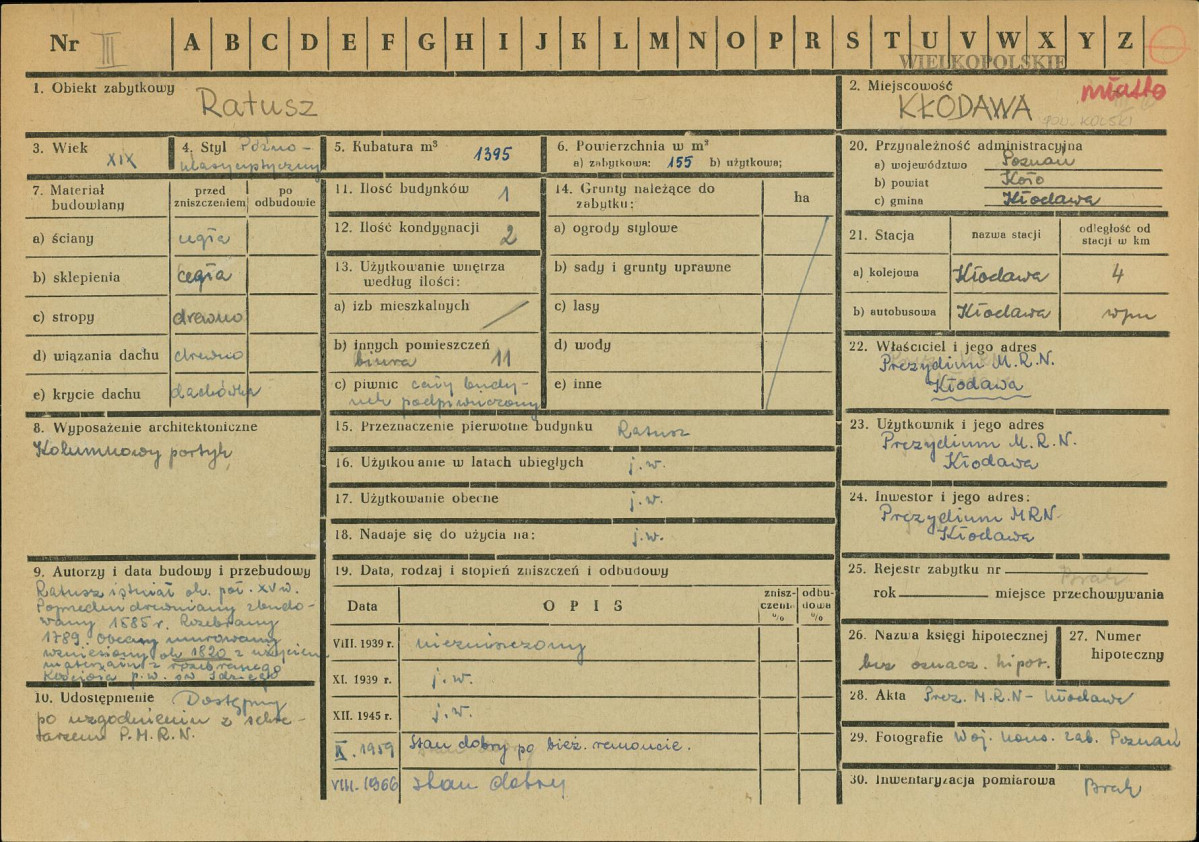 Nr III A B C D E F G H I J K L M N O P R S T U V W X Y Z
WIELKOPOLSKIE
1. Obiekt zabytkowy Ratusz
2. Miejscowość miasto
KŁODAWA
pow. KOLSKI
3. Wiek XIX
4. Styl Późno-
klasycystyczny
5. Kubatura m³ 1395
6. Powierzchnia w m²
a) zabytkowa: 155 b) użytkowa:
7. Materiał budowlany
przed zniszczeniem
po odbudowie
a) ściany cegła
b) sklepienia cegła
c) stropy drewno
d) wiązania dachu drewno
e) krycie dachu dachówka
8. Wyposażenie architektoniczne
Kolumnowy portyk
9. Autorzy i data budowy i przebudowy
Ratusz istniał ok. poł. XV w.
Poprzedni drewniany zbudo-
wany 1585 r. Rozebrany
1789. Obecny murowany
wzniesiony ok 1820 z użyciem
materiału z rozebranego
Kościoła p.w. św Idziego
10. Udostępnienie Dostępny
po uzgodnieniu z sekre-
tarzem P.M.R.N.
11. Ilość budynków 1
12. Ilość kondygnacji 2
13. Użytkowanie wnętrza
według ilości:
a) izb mieszkalnych /
b) innych pomieszczeń
biura 11
c) piwnic cały budy-
nek podpiwniczony
14. Grunty należące do
zabytku:
ha
a) ogrody stylowe
b) sady i grunty uprawne
c) lasy
d) wody
e) inne
15. Przeznaczenie pierwotne budynku Ratusz
16. Użytkowanie w latach ubiegłych j.w.
17. Użytkowanie obecne j.w.
18. Nadaje się do użycia na: j.w.
19. Data, rodzaj i stopień zniszczeń i odbudowy
Data
OPIS
znisz-
czenia
%
odbu-
dowa
%
VIII. 1939 r. niezniszczony
XI. 1939 r. j.w.
XII. 1945 r. j.w.
X. 1959 Stan dobry po bież. remoncie.
VIII. 1966 stan dobry
20. Przynależność administracyjna
a) województwo Poznań
b) powiat Koło
c) gmina Kłodawa
21. Stacja
nazwa stacji
odległość od
stacji w km
a) kolejowa Kłodawa 4
b) autobusowa Kłodawa wpm
22. Właściciel i jego adres
Prezydium M.R.N.
Kłodawa
23. Użytkownik i jego adres
Prezydium M.R.N.
Kłodawa
24. Inwestor i jego adres:
Prezydium MRN
Kłodawa
25. Rejestr zabytku nr Brak
rok miejsce przechowywania
26. Nazwa księgi hipotecznej
bez oznacz. hipot.
27. Numer
hipoteczny
28. Akta Prez. M.R.N- Kłodawa
29. Fotografie Woj. kons. zab. Poznań
30. Inwentaryzacja pomiarowa Brak